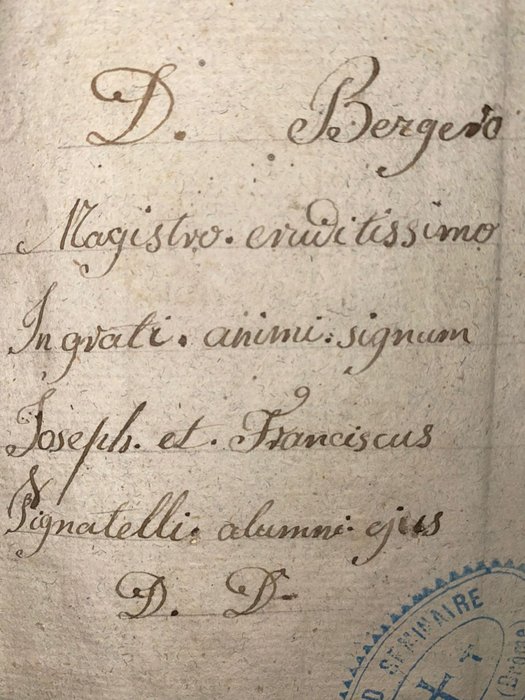 D. Bergero
Magistro. eruditissimo
In grati. animi. signum
Joseph. et. Franciscus
Pignatelli. alumni. ejus
D. D.
D SEMINAIRE
(Drôme)